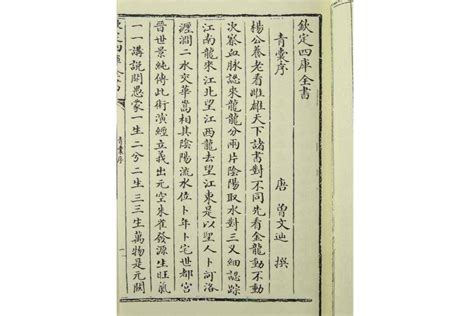 欽定四庫全書
青囊序
唐 曾文迪 撰
楊公養老看雌雄天下諸書對不同先看金龍動不動
次察血脉認來龍龍分兩片陰陽取水對三叉細認踪
江南龍來江北望江西龍去望江東是以聖人卜河洛
瀍澗二水交華嵩相其陰陽流水位卜年卜宅世都宮
晉世景純傳此術演經立義出元空朱雀發源生旺氣
一一講說開愚蒙一生二兮二生三三生萬物是元關
欽定四庫全書
青囊序